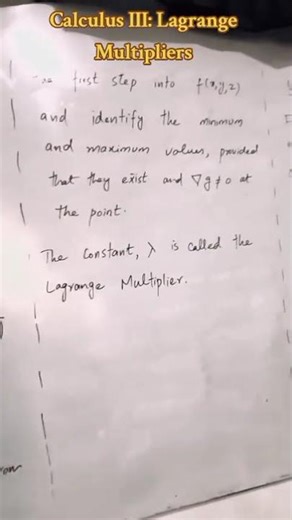 Calculus III: Lagrange
Multipliers
first step into f(x,y,z)
and identify the minimum
and maximum values, provided
that they exist and ∇g ≠ 0 at
the point.
The constant, λ is called the
Lagrange Multiplier.